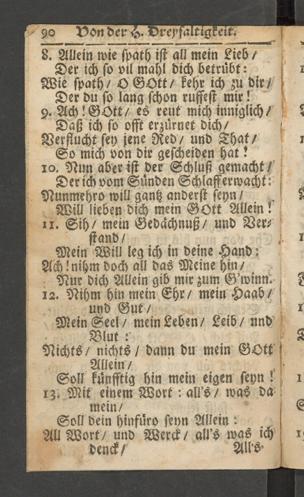 90 Von der H. Dreyfaltigkeit.
8. Allein wie spath ist all mein Lieb/
Der ich so vil mahl dich betrübt:
Wie spath/ O GOtt/ kehr ich zu dir/
Der du so lang schon ruffest mir!
9. Ach! GOtt/ es reut mich inniglich/
Daß ich so offt erzürnet dich/
Verflucht sey jene Red/ und That/
So mich von dir gescheiden hat!
10. Nun aber ist der Schluß gemacht/
Der ich vom Sünden Schlaff erwacht:
Nunmehro will gantz anderst seyn/
Will lieben dich mein GOtt Allein!
11. Sih/ mein Gedächnuß/ und Ver-
stand/
Mein Will leg ich in deine Hand:
Ach! nihm doch all das Meine hin/
Nur dich Allein gib mir zum G'winn.
12. Nihm hin mein Ehr/ mein Haab/
und Gut/
Mein Seel/ mein Leben/ Leib/ und
Blut:
Nichts/ nichts/ dann du mein GOtt
Allein/
Soll künfftig hin mein eigen seyn!
13. Mit einem Wort: all's/ was da
mein/
Soll dein hinfüro seyn Allein:
All Wort/ und Werck/ all's was ich
denck/ All's